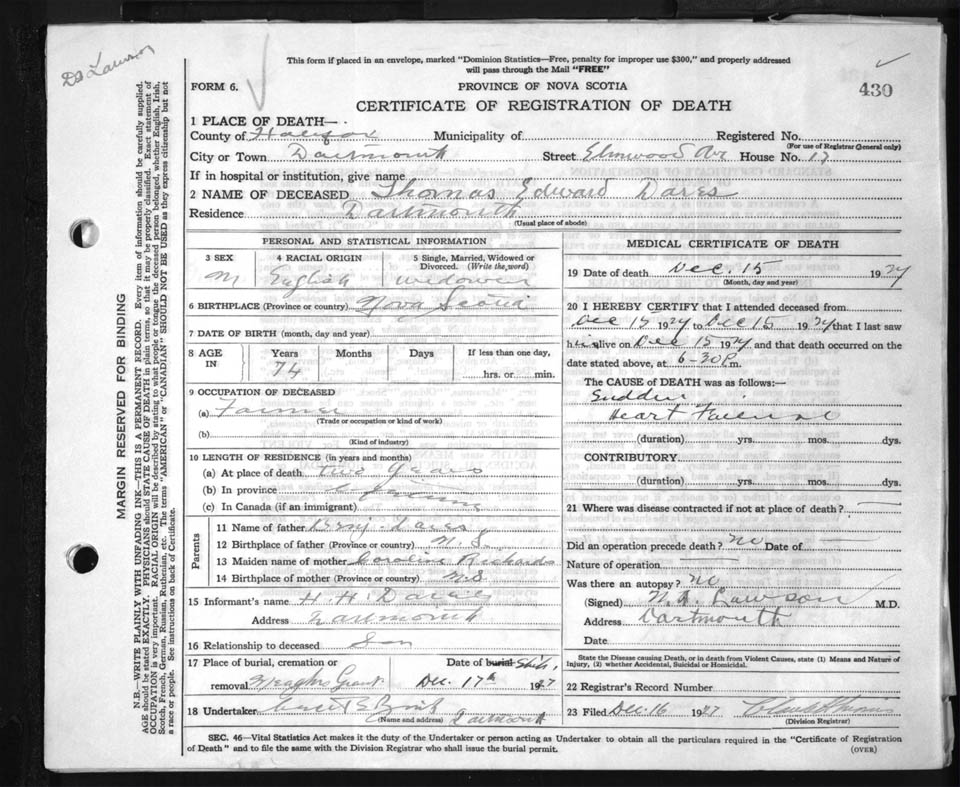 Dr Lawson
This form if placed in an envelope, marked "Dominion Statistics—Free, penalty for improper use $300," and properly addressed
will pass through the Mail "FREE"
FORM 6.
PROVINCE OF NOVA SCOTIA
430
CERTIFICATE OF REGISTRATION OF DEATH
1 PLACE OF DEATH—
County of Halifax Municipality of Registered No.
(For use of Registrar General only)
City or Town Dartmouth Street Elmwood Ave House No. 17
If in hospital or institution, give name
2 NAME OF DECEASED Thomas Edward Dares
Residence Dartmouth
(Usual place of abode)
PERSONAL AND STATISTICAL INFORMATION
3 SEX 4 RACIAL ORIGIN 5 Single, Married, Widowed or
Divorced. (Write the word)
M English widower
6 BIRTHPLACE (Province or country) Nova Scotia
7 DATE OF BIRTH (month, day and year)
8 AGE IN Years Months Days If less than one day,
74 hrs. or min.
9 OCCUPATION OF DECEASED
(a) Farmer
(Trade or occupation or kind of work)
(b)
(Kind of industry)
10 LENGTH OF RESIDENCE (in years and months)
(a) At place of death two years
(b) In province
(c) In Canada (if an immigrant)
Parents
11 Name of father Benj. Dares
12 Birthplace of father (Province or country) N.S.
13 Maiden name of mother Caroline Richards
14 Birthplace of mother (Province or country) N.S
15 Informant's name H. H. Dares
Address Dartmouth
16 Relationship to deceased Son
17 Place of burial, cremation or Date of burial
removal Meaghrs Grant Dec. 17th 1927
18 Undertaker
(Name and address) Dartmouth
MEDICAL CERTIFICATE OF DEATH
19 Date of death Dec. 15 1927
(Month, day and year)
20 I HEREBY CERTIFY that I attended deceased from
Dec 15 1927 to Dec 15 1927 that I last saw
him alive on Dec 15 1927 and that death occurred on the
date stated above, at 6-30 P. m.
The CAUSE OF DEATH was as follows:—
Sudden
Heart Failure
(duration) yrs. mos. dys.
CONTRIBUTORY
(duration) yrs. mos. dys.
21 Where was disease contracted if not at place of death?
Did an operation precede death? no Date of
Nature of operation
Was there an autopsy? no
(Signed) Lawson M.D.
Address Dartmouth
Date
State the Disease causing Death, or in death from Violent Causes, state (1) Means and Nature of
Injury, (2) whether Accidental, Suicidal or Homicidal.
22 Registrar's Record Number
23 Filed Dec. 16 1927
(Division Registrar)
SEC. 46—Vital Statistics Act makes it the duty of the Undertaker or person acting as Undertaker to obtain all the particulars required in the "Certificate of Registration
of Death" and to file the same with the Division Registrar who shall issue the burial permit.
(OVER)
MARGIN RESERVED FOR BINDING
N.B.—WRITE PLAINLY WITH UNFADING INK—THIS IS A PERMANENT RECORD. Every item of information should be carefully supplied.
AGE should be stated EXACTLY. PHYSICIANS should STATE CAUSE OF DEATH in plain terms, so that it may be properly classified. Exact statement of
OCCUPATION is very important. RACIAL ORIGIN will be described by stating to what people or tongue the deceased person belonged, whether English, Irish,
Scotch, French, German, Russian, Ruthenian, etc. The terms "AMERICAN" or "CANADIAN" SHOULD NOT BE USED as they express citizenship but not
a race or people. See instructions on back of Certificate.